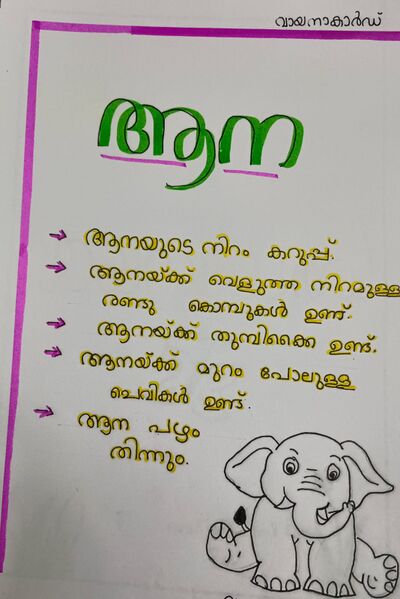 വായനാകാർഡ്
ആന
ആനയുടെ നിറം കറുപ്പ്.
ആനയ്ക്ക് വെളുത്ത നിറമുള്ള
രണ്ടു കൊമ്പുകൾ ഉണ്ട്.
ആനയ്ക്ക് തുമ്പിക്കൈ ഉണ്ട്.
ആനയ്ക്ക് മുറം പോലുള്ള
ചെവികൾ ഉണ്ട്.
ആന പഴം
തിന്നും.